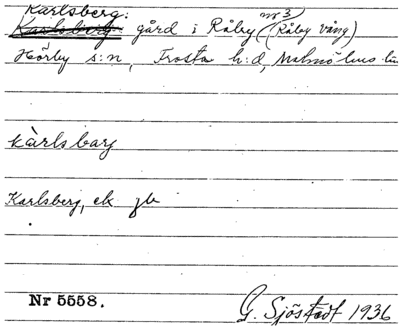 Karlsberg:
Karlsberg: gård i Råby nr 3 (Råby vång)
Hörby s:n, Frosta h:d, Malmöhus län
kàrlsbarj
Karlsberg, ek
Nr 5558.
G. Sjöstedt 1936